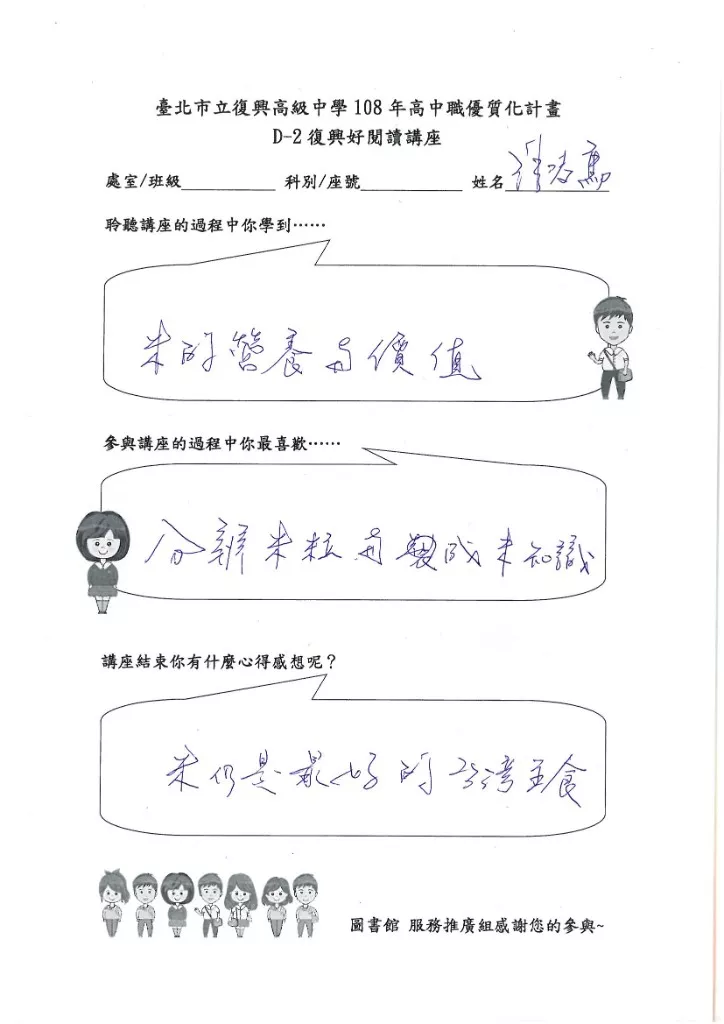 臺北市立復興高級中學108年高中職優質化計畫
D-2復興好閱讀講座
處室/班級 科別/座號 姓名
聆聽講座的過程中你學到……
米的營養与價值
參與講座的過程中你最喜歡……
分辨米粒与 成米知識
講座結束你有什麼心得感想呢？
米仍是最好的台湾主食
圖書館 服務推廣組感謝您的參與~